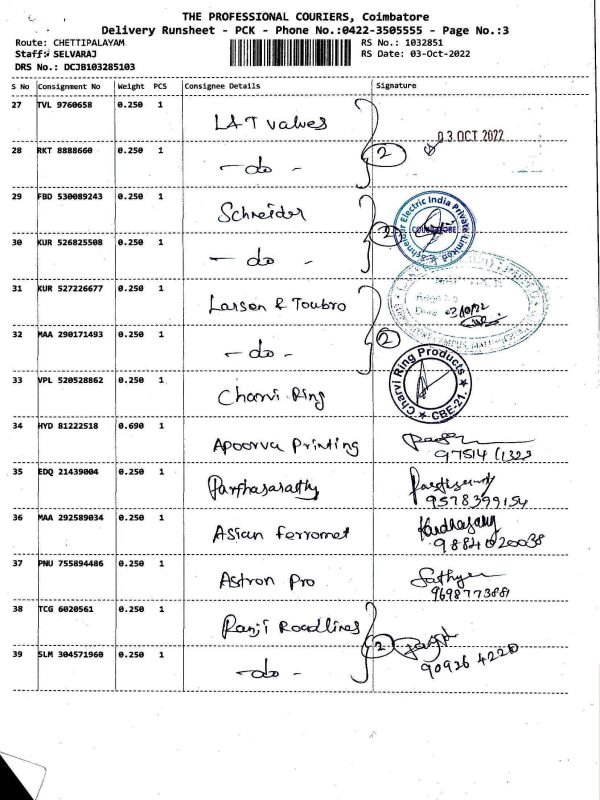 THE PROFESSIONAL COURIERS, Coimbatore
Delivery Runsheet - PCK - Phone No.:0422-3505555 - Page No.:3
Route: CHETTIPALAYAM RS No.: 1032851
Staff: SELVARAJ RS Date: 03-Oct-2022
DRS No.: DCJB103285103
S No Consignment No Weight PCS Consignee Details Signature
27 TVL 9760658 0.250 1 L&T valves
03 OCT 2022
28 RKT 8888660 0.250 1 - do - 2
29 FBD 530089243 0.250 1 Schneider
Electric India Private Limited
COIMBATORE
30 KUR 526825508 0.250 1 - do - 2
31 KUR 527226677 0.250 1 Larsen & Toubro
Date 03/10/22
32 MAA 290171493 0.250 1 - do - 2
33 VPL 520528862 0.250 1 Charvi Ring
Charvi Ring Products
CBE-21.
34 HYD 81222518 0.690 1 Apoorva Printing
35 EDQ 21439004 0.250 1 Parthasarathy
9578399154
36 MAA 292589034 0.250 1 Asian Ferromet
9884020038
37 PNU 755894486 0.250 1 Astron Pro Sathya
9698773881
38 TCG 6020561 0.250 1 Ranji Roadlines
39 SLM 304571960 0.250 1 - do - 2
90926 4220